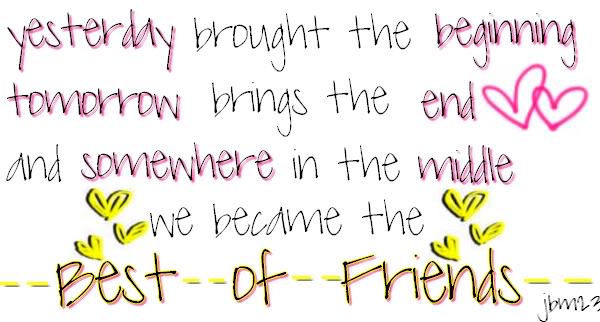 yesterday brought the beginning
tomorrow brings the end
and somewhere in the middle
we became the
Best of Friends
jbm23